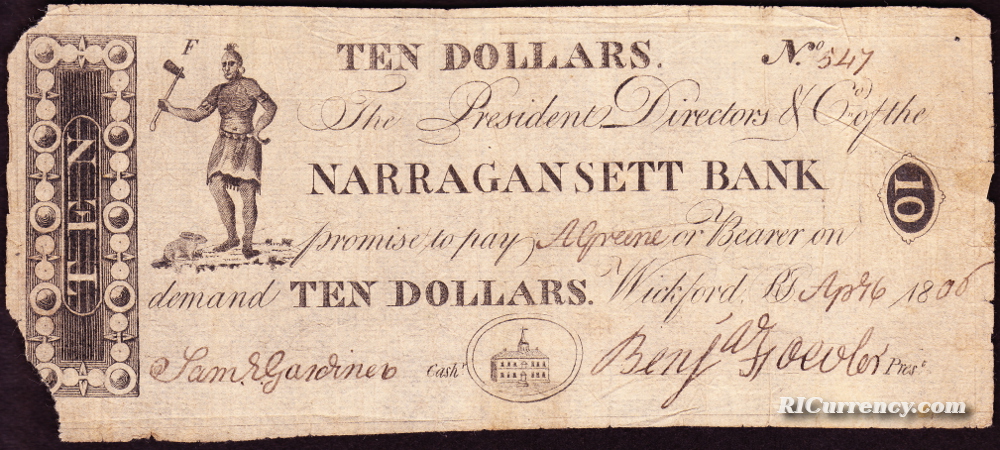 F TEN DOLLARS. No. 547
The President, Directors & Co. of the
NARRAGANSETT BANK
promise to pay A Greene or Bearer on
demand TEN DOLLARS. Wickford, RI Apr 6 1806
Saml. E. Gardiner Cashr. Benja Fowler Prest.
TEN
10
RICurrency.com